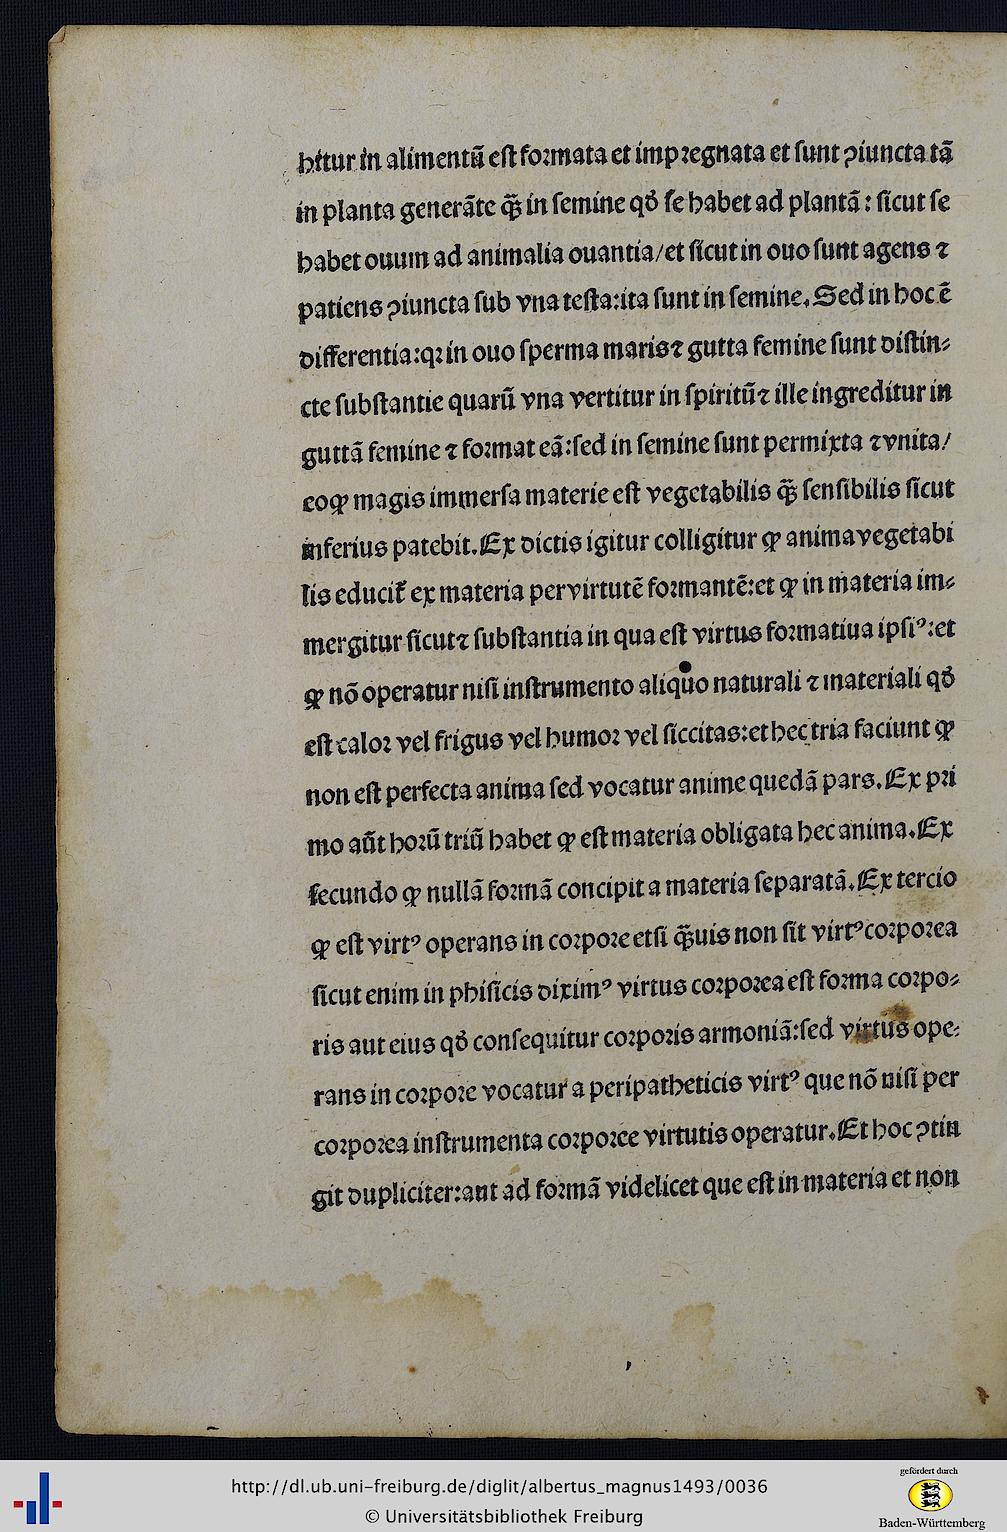 hitur in alimentū eſt foꝛmata et impꝛegnata et ſunt ꝯiuncta tā
in planta generāte q̄ꝫ in ſemine qđ ſe habet ad plantā: ſicut ſe
habet ouum ad animalia ouantia/et ſicut in ouo ſunt agens ⁊
patiens ꝯiuncta ſub vna teſta:ita ſunt in ſemine. Sed in hoc ē
differentia:qꝛ in ouo ſperma maris ⁊ gutta femine ſunt diſtin⸗
cte ſubſtantie quarū vna vertitur in ſpiritū ⁊ ille ingreditur in
guttā femine ⁊ foꝛmat eā:ſed in ſemine ſunt permixta ⁊ vnita/
eoꝙ magis immerſa materie eſt vegetabilis q̄ꝫ ſenſibilis ſicut
inferius patebit. Ex dictis igitur colligitur ꝙ anima vegetabi
lis educit̃ ex materia per virtutē foꝛmantē:et ꝙ in materia im⸗
mergitur ſicut ⁊ ſubſtantia in qua eſt virtus foꝛmatiua ipſiꝰ:et
ꝙ nō operatur niſi inſtrumento aliquo naturali ⁊ materiali qđ
eſt caloꝛ vel frigus vel humoꝛ vel ſiccitas:et hec tria faciunt ꝙ
non eſt perfecta anima ſed vocatur anime quedā pars. Ex pꝛi
mo aūt hoꝛū triū habet ꝙ eſt materia obligata hec anima. Ex
ſecundo ꝙ nullā foꝛmā concipit a materia ſeparatā. Ex tercio
ꝙ eſt virtꝰ operans in coꝛpoꝛe etſi q̄ꝫuis non ſit virtꝰ coꝛpoꝛea
ſicut enim in phiſicis diximꝰ virtus coꝛpoꝛea eſt foꝛma coꝛpo⸗
ris aut eius qđ conſequitur coꝛpoꝛis armoniā:ſed virtus ope⸗
rans in coꝛpoꝛe vocatur a peripatheticis virtꝰ que nō niſi per
coꝛpoꝛea inſtrumenta coꝛpoꝛee virtutis operatur. Et hoc ꝯtin
git dupliciter:aut ad foꝛmā videlicet que eſt in materia et non
http://dl.ub.uni-freiburg.de/diglit/albertus_magnus1493/0036
© Universitätsbibliothek Freiburg
gefördert durch
Baden-Württemberg